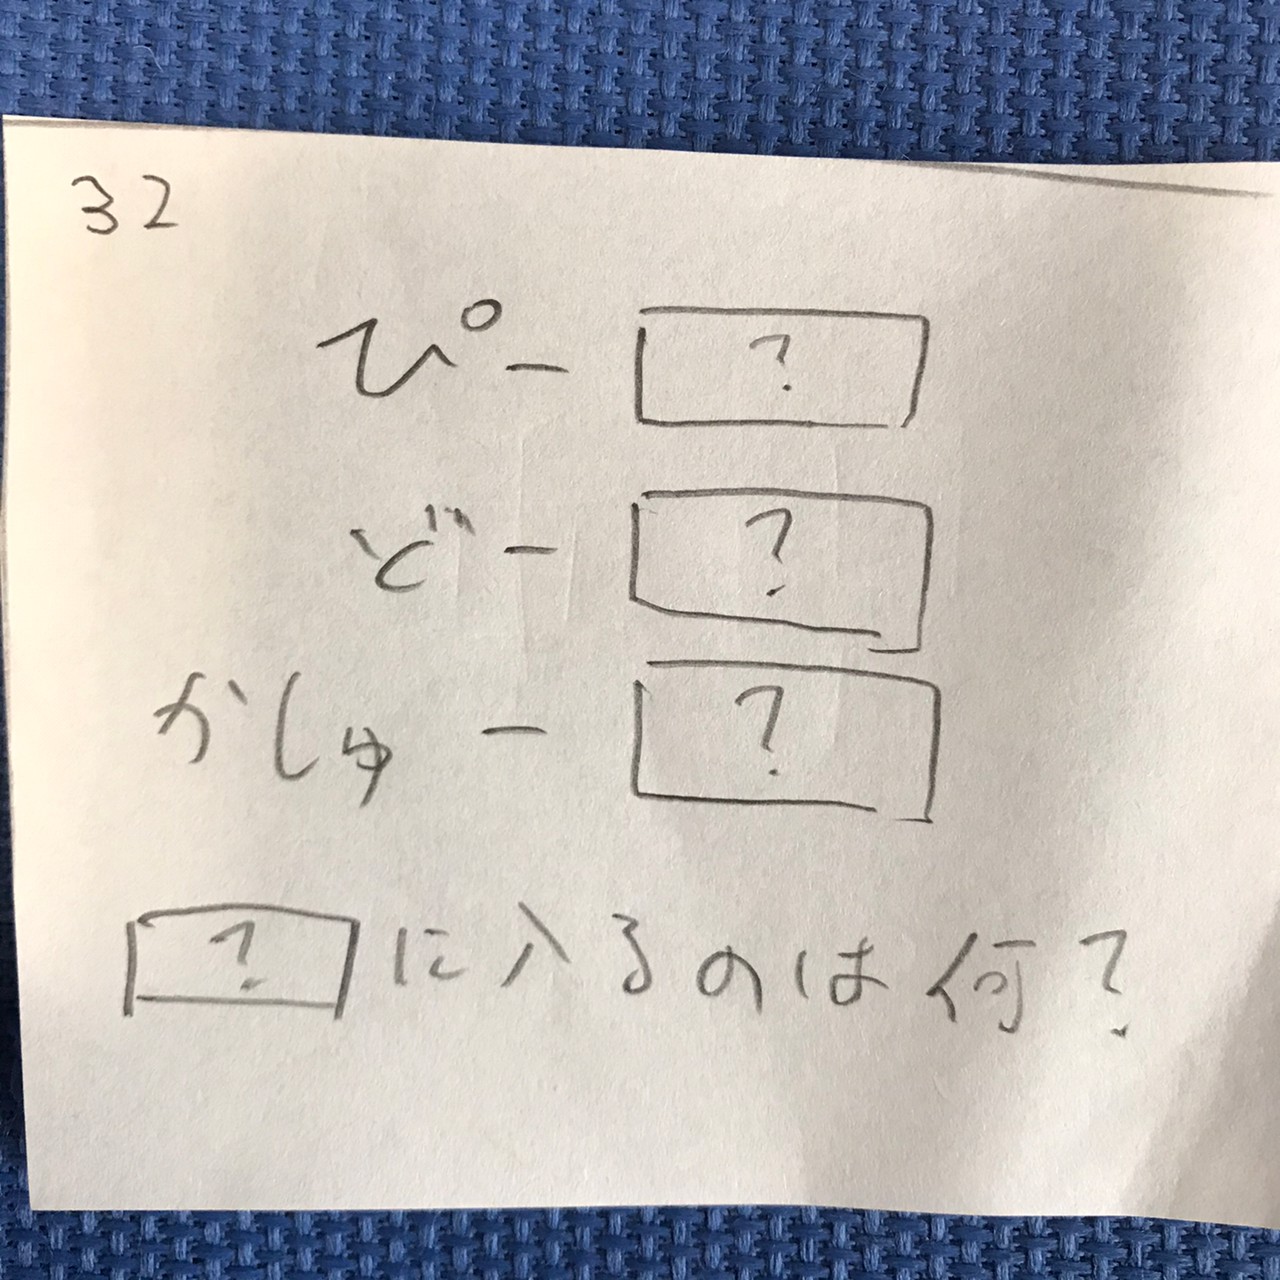 32
ぴー ?
どー ?
かしゅー ?
? に入るのは何?